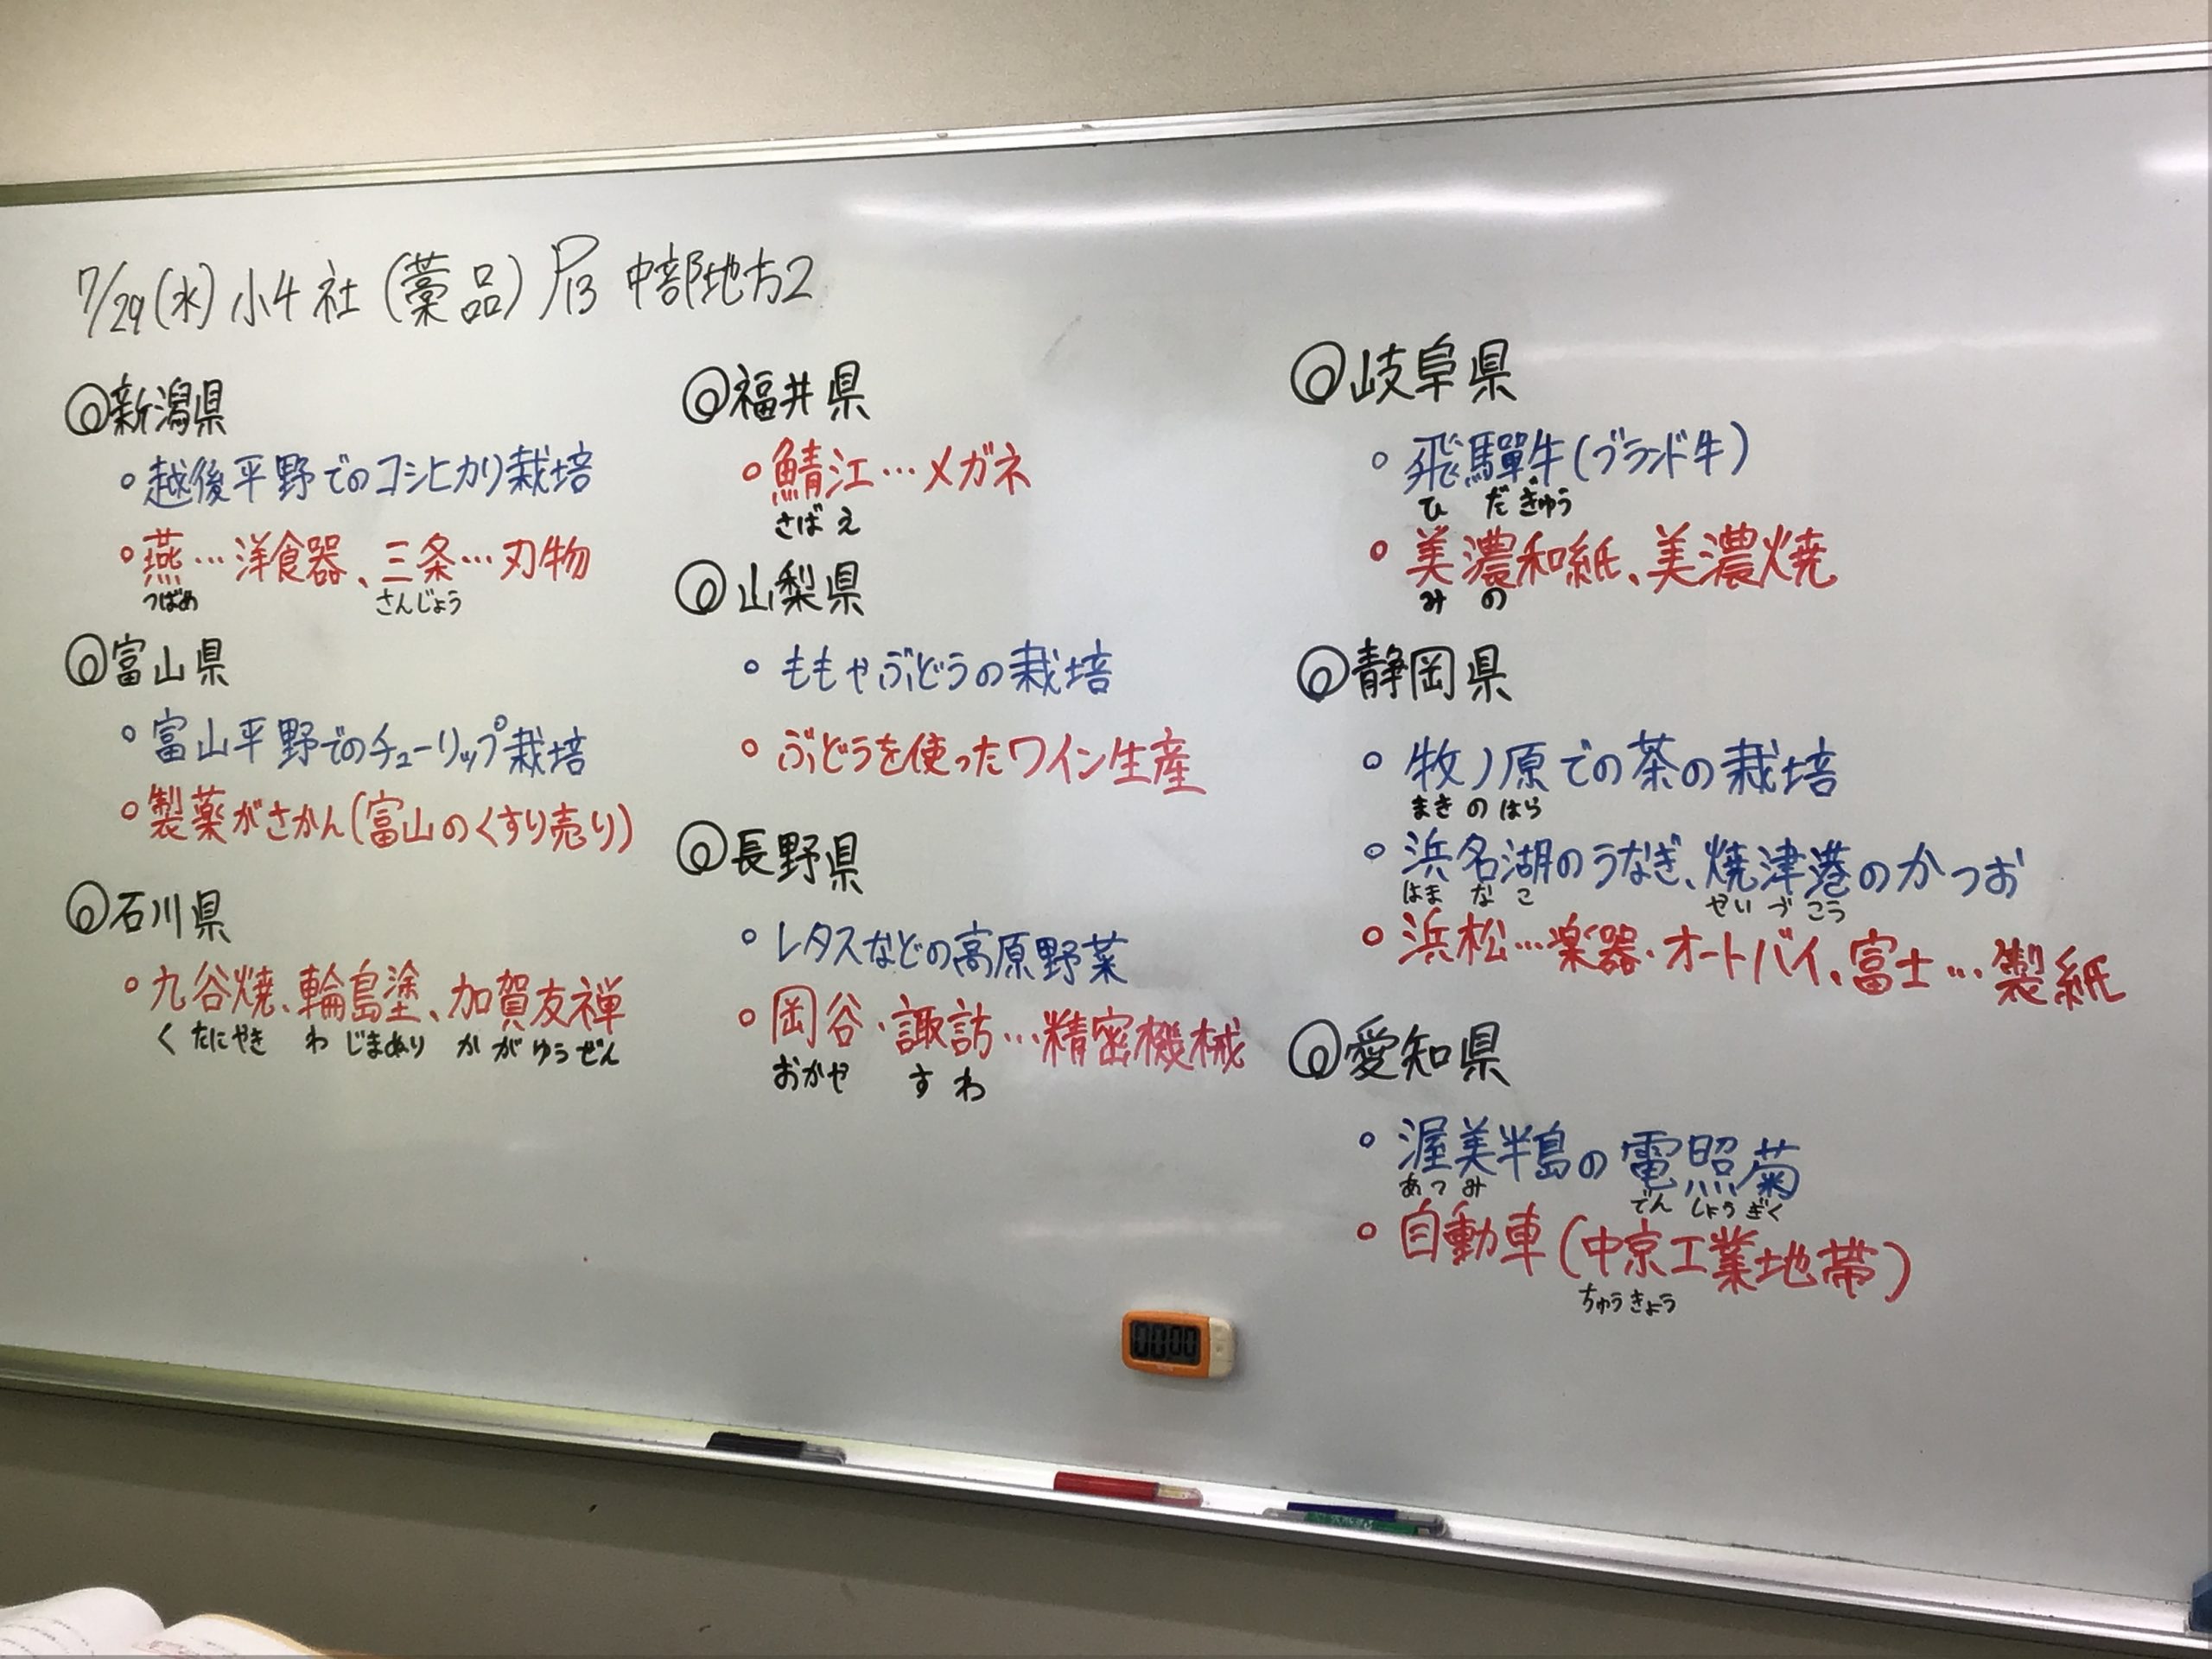 7/29(水)小4社(藁品)P13 中部地方2
◎新潟県
○越後平野でのコシヒカリ栽培
○燕…洋食器、三条…刃物
つばめ さんじょう
◎富山県
○富山平野でのチューリップ栽培
○製薬がさかん(富山のくすり売り)
◎石川県
○九谷焼、輪島塗、加賀友禅
くたにやき わじまぬり かがゆうぜん
◎福井県
○鯖江…メガネ
さばえ
◎山梨県
○ももやぶどうの栽培
○ぶどうを使ったワイン生産
◎長野県
○レタスなどの高原野菜
○岡谷・諏訪…精密機械
おかや すわ
◎岐阜県
○飛驒牛(ブランド牛)
ひだぎゅう
○美濃和紙、美濃焼
みの
◎静岡県
○牧ノ原での茶の栽培
まきのはら
○浜名湖のうなぎ、焼津港のかつお
はまなこ やいづこう
○浜松…楽器・オートバイ、富士…製紙
◎愛知県
○渥美半島の電照菊
あつみ でんしょうぎく
○自動車(中京工業地帯)
ちゅうきょう
00:00